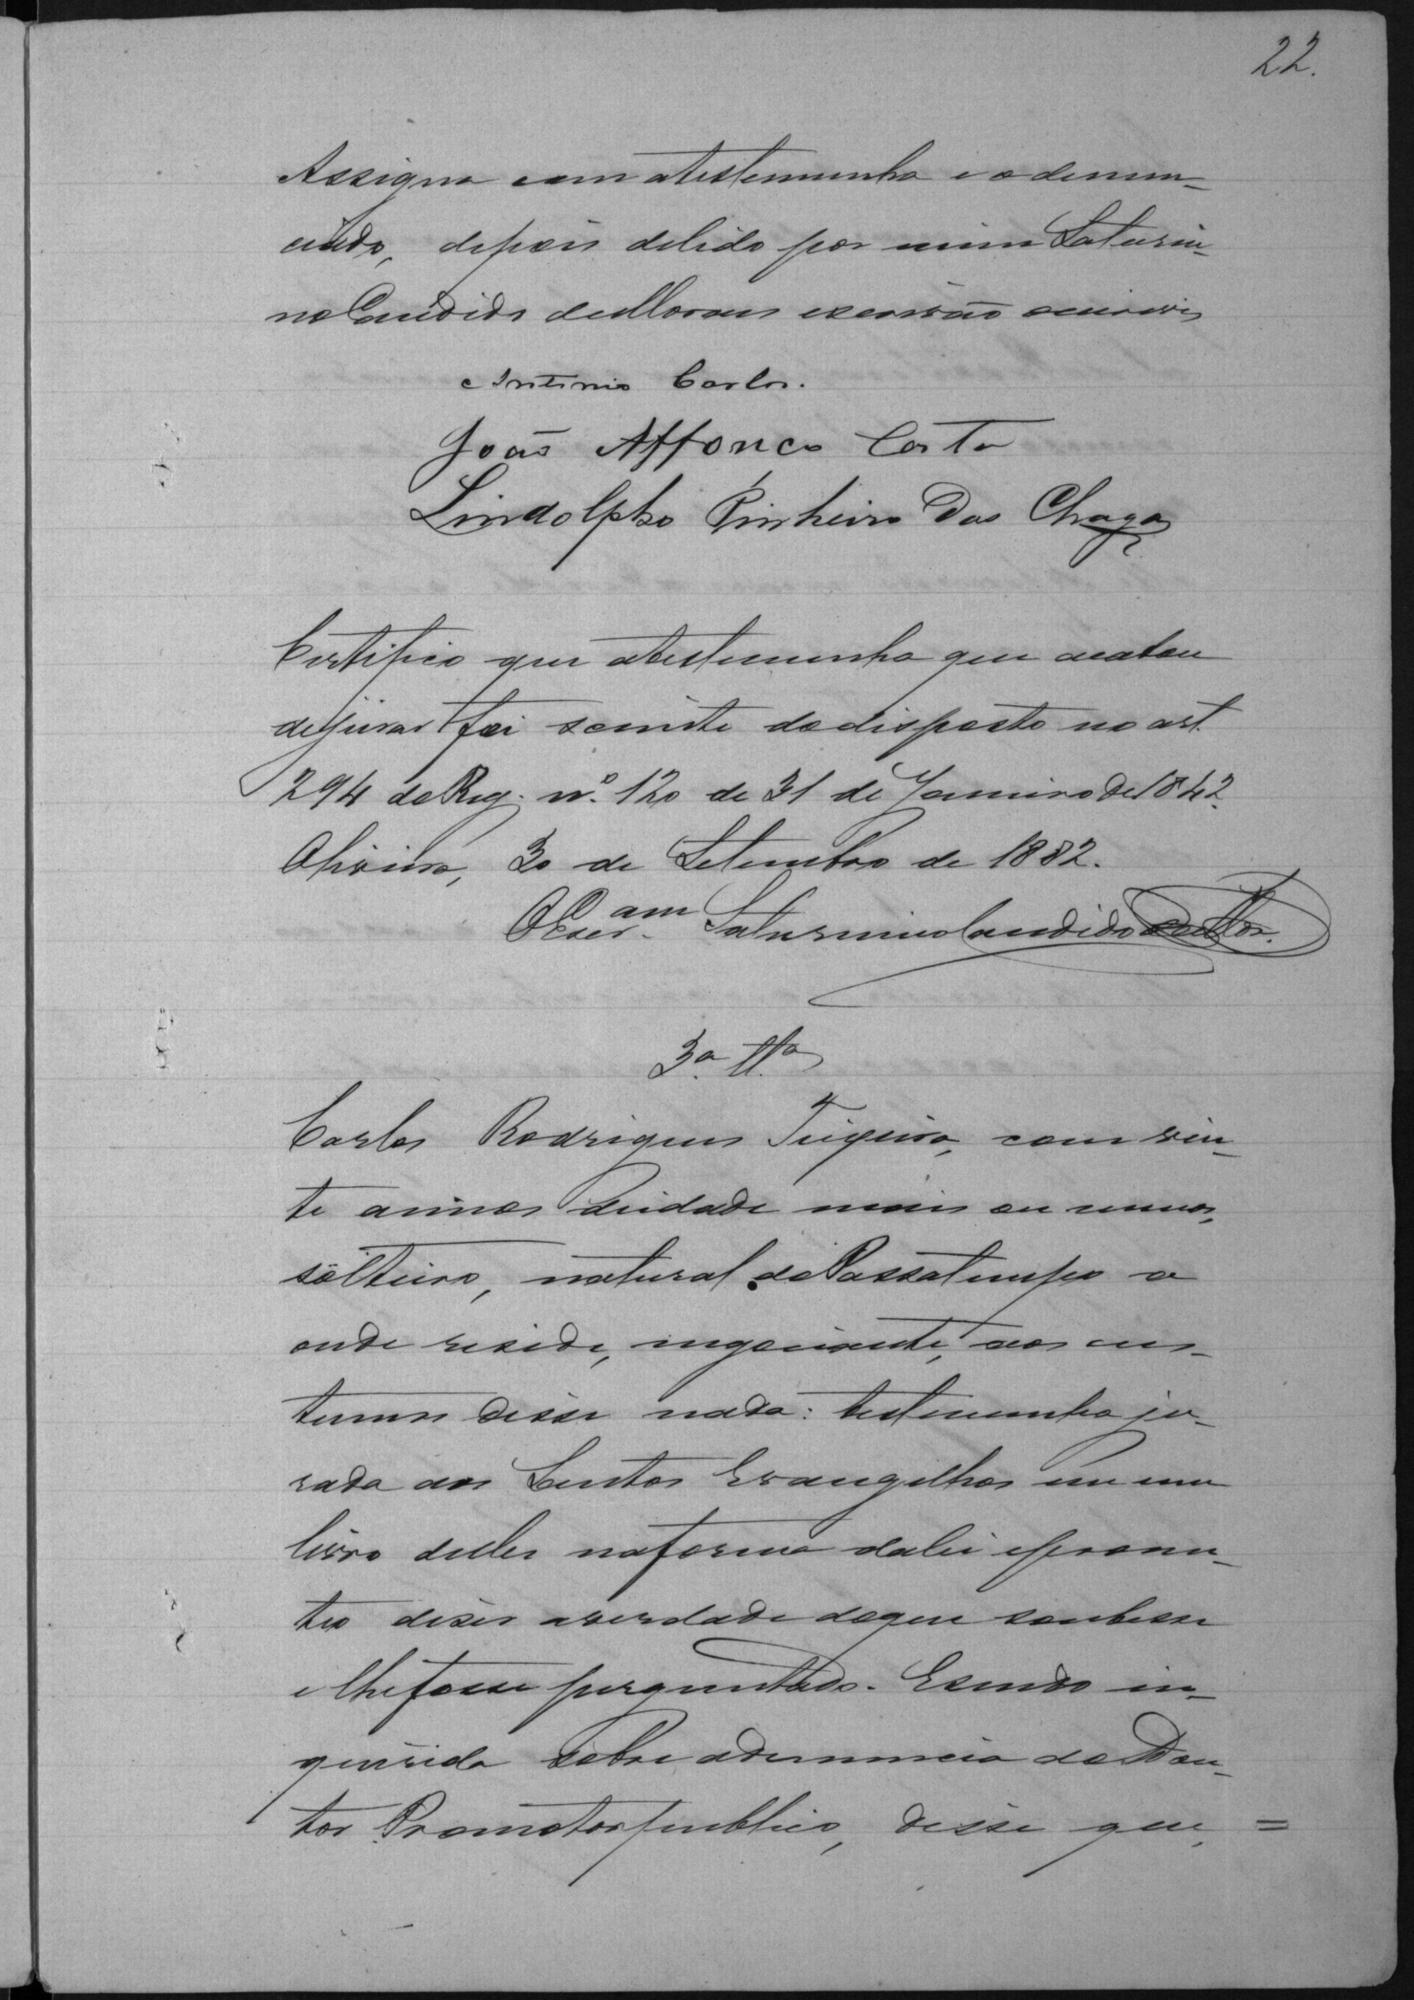 22.
Assigna com atestemunha e o denun-
ciado, depois delido por mim Saturni-
no Candido de Moraes escrivão escrevi
Antonio Carlos.
João Affonco Costa
Lindolpho Pinheiro Das Chagas
Certifico que atestemunha que acabou
dejurar foi sciente dodisposto no art.
294 do Reg. nº 120 de 31 de Janeiro de 1842.
Oliveira, 30 de Setembro de 1882.
O Escr.am Saturnino Candido de Mor.
3ª Tª
Carlos Rodrigues Teixeira, com vin-
te annos deidade mais ou menos,
solteiro, natural do Passatempo a
onde reside, negociante, aos cus-
tumes disse nada: testemunha ju-
rada aos Santos Evangelhos em um
livro delles naforma dalei eprome-
teo diser averdade doque soubesse
e lhefosse perguntado. Esendo in-
querida sobre adenuncia do Dou-
tor Promotor publico, disse que, =